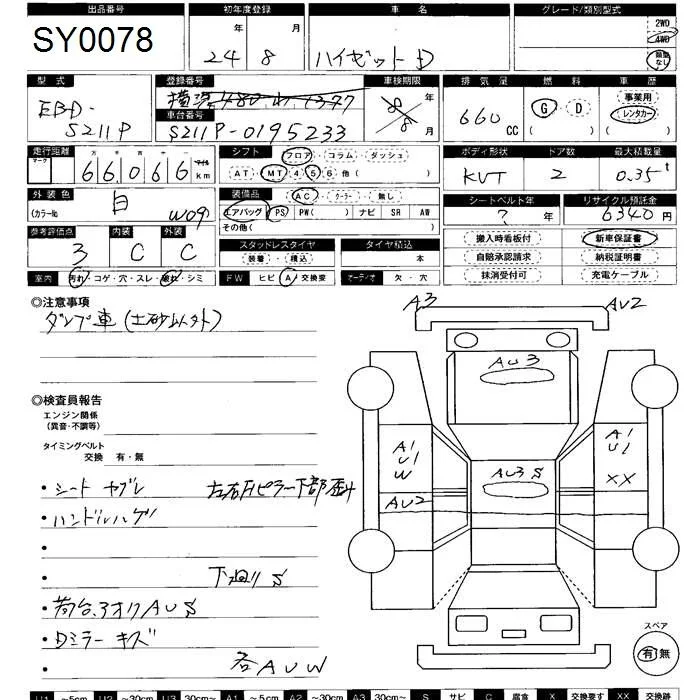 出品番号 初年度登録 車名 グレード/類別型式
SY0078 24年 8月 ハイゼットD 2WD 4WD 装備なし
型式 登録番号 車検期限 排気量 燃料 車歴
EBD-S211P 横浜480 年 8月 660 CC G・D ( ) 事業用 レンタカー ( )
車台番号
S211P-0195233
走行距離 シフト フロア・コラム・ダッシュ ボディ形状 ドア数 最大積載量
マーク 66066 マイル km AT・MT 4 5 6 他( ) KVT 2 0.35t
外装色 白 (カラーNo W09) 装備品 AC・クーラー・無し シートベルト年 リサイクル預託金
エアバッグ PS PW( ) ナビ SR AW ?年 6340円
その他( )
参考評価点 内装 外装 スタッドレスタイヤ タイヤ積込 搬入時看板付 新車保証書
3 C C 装着・積込 本 自賠承認請求 納税証明書
室内 汚れ・コゲ・穴・スレ・・シミ FW ヒビ A 交換要 オーディオ 欠・穴 抹消受付可 充電ケーブル
◎注意事項
ダンプ車(土砂以外)
◎検査員報告
エンジン関係
(異音・不調等)
タイミングベルト
交換 有・無
・シート ヤブレ 左右Fピラー下部歪み
・ハンドルハゲ
・
・下廻りS
・荷台、アオリAUS
・Dミラー キズ
・各AUW
A3 AU2
AU3
A1 U1 W
A1 U1 XX
AU3S
AU2
スペア
有 無
U1 ~5cm U2 ~30cm U3 30cm~ A1 ~5cm A2 ~30cm A3 30cm~ S サビ C 腐食 X 交換要す XX 交換跡